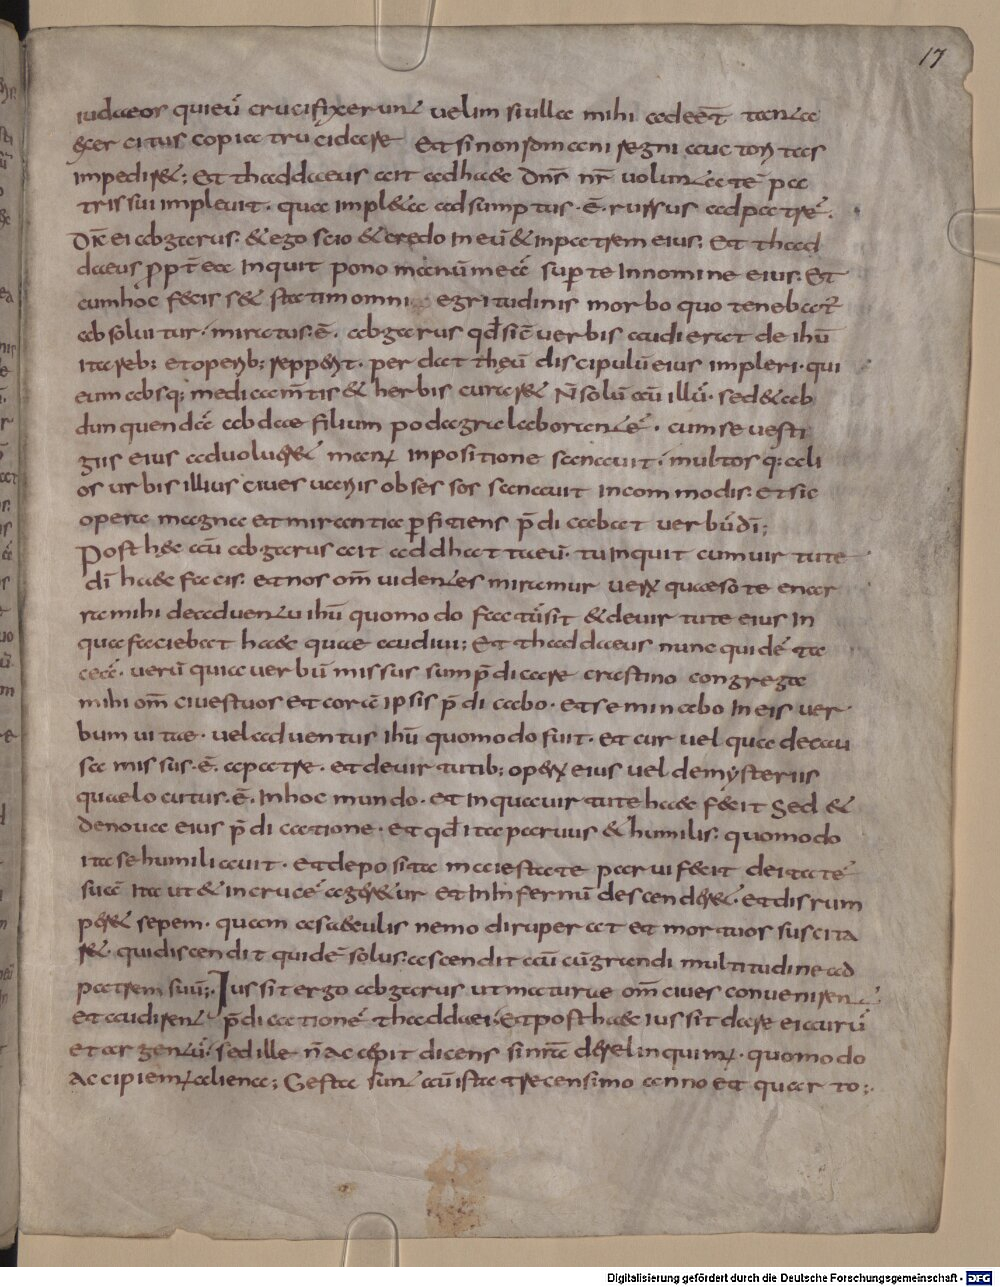 17
iudaeos qui eū crucifixerunt uelim si ulla mihi adeēt tanta
exercitus copia trucidare Et si non romani regni auctoritas
impediret; Et thaddaeus ait ad haec dn̄s nr̄ uoluntatē pa
tris sui impleuit· qua impleta adsumptus·ē· rursus ad patrē·
Dīc ei abgarus· & ego scio & credo in eū & in patrem eius; Et thad
daeus ppt̄ ea inquit pono manū meā sup te In nomine eius; Et
cum hoc fecis s& statim omni egritudinis morbo quo tenebat̄
absoluitur· miratus·ē· abgarus qd̄ sic̄ uerbis audierat de ihū
ita reb; et operib; repperit· per datheū discipulū eius impleri· qui
eum absq; medicam̄tis & herbis curar& N̄ solū aū illū· sed & ab
dun quendā abdae filium podagra laborantē· cum se uesti
giis eius aduoluer& man; inpositione sanauit· multos q; ali
os urbis illius ciues uariis obsessos sanauit incommodis· et sic
opera magna et mirantia pficiens p̄dicabat uerbū dī;
Post h&c aū abgarus ait ad dhattaeū· tu Inquit cum uirtute
dī haec facis· et nos om̄ uidentes miramur uerū quaeso te enar
ra mihi de aduentu ihū quomodo factū sit & de uirtute eius In
qua faciebat haec quae audiui; Et thaddaeus nunc quidē ta
ceā· uerū quia uerbū missus sum p̄dicare crastino congrega
mihi om̄ ciues tuos et corā ipsis p̄dicabo· et seminabo In eis uer
bum uitae· uel aduentus ihū quomodo fuit· et cur uel qua de cau
sa missus·ē· a patre· et de uirtutib; operū eius uel de mysteriis
quae locutus·ē· In hoc mundo· et In qua uirtute haec fecit Sed &
de noua eius p̄dicatione· et qd̄ ita paruus & humilis· quomodo
ita se humiliauit· et deposita maiestate paruifecit deitatē
suā Ita ut & in crucē ager&ur et In Infernū descender&· et disrum
per& sepem· quam a saeculis nemo diruperat et mortuos suscita
r&· qui discendit quidē solus· ascendit aū cū grandi multitudine ad
patrem suū; Iussit ergo abgarus ut maturae om̄ ciues conuenirent
et audirent p̄dicationē thaddaei· Et post haec iussit dare ei aurū
et argentū· sed ille n̄ accepit dicens si nr̄a derelinquim; quomodo
Accipiem; aliena; Gesta sunt aū ista trecensimo anno et quarto;
Digitalisierung gefördert durch die Deutsche Forschungsgemeinschaft - DFG